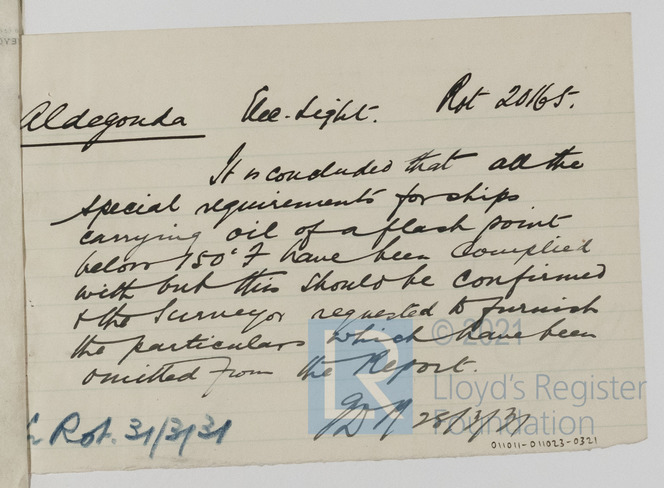 Aldegonda Elec-Light. Rot 20165.
It is concluded that all the
special requirements for ships
carrying oil of a flash point
below 150°F have been complied
with but this should be confirmed
& the Surveyor requested to furnish
the particulars which have been
omitted from the Report.
28/3/31
Rot. 31/3/31
© 2021
LR
Lloyd's Register
Foundation
011011-011023-0321